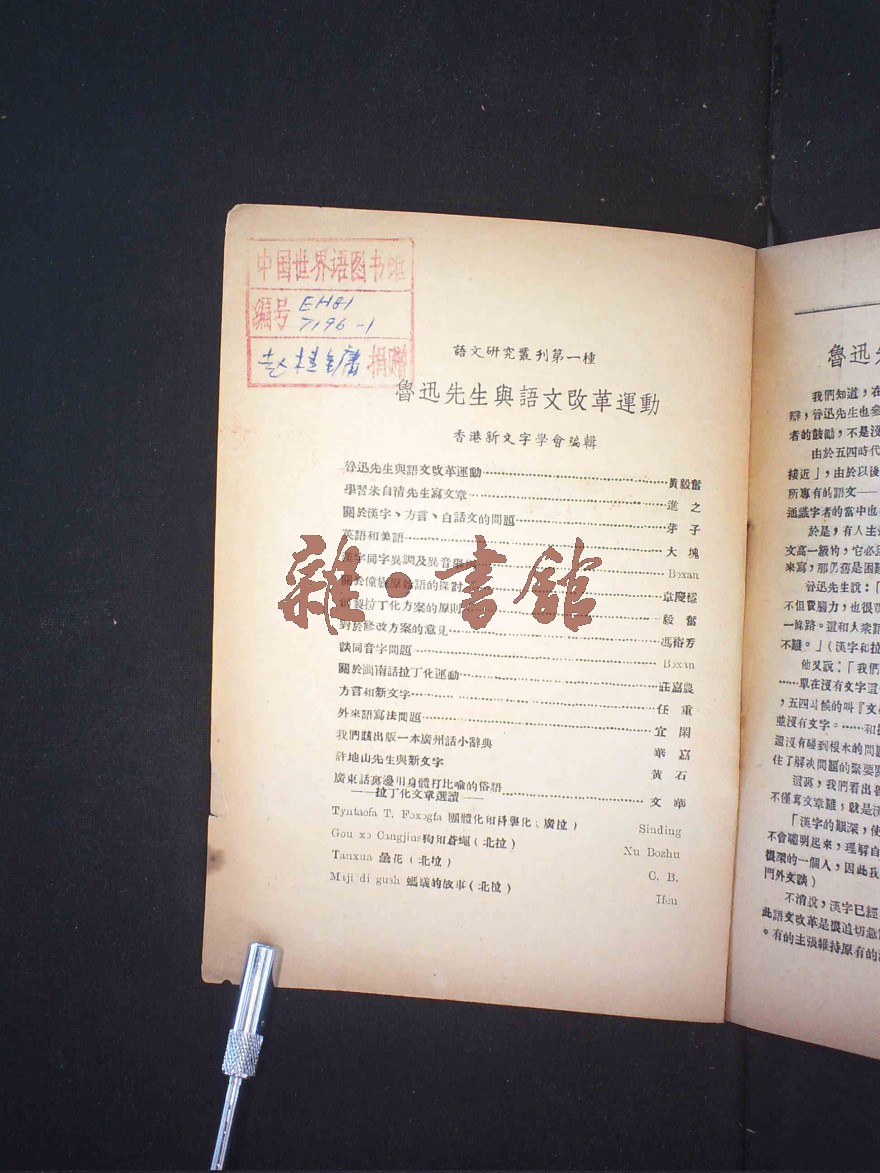 中国世界语图书馆
编号 EH81
7196-1
捐赠
語文研究叢刊第一種
魯迅先生與語文改革運動
香港新文字學會編輯
魯迅先生與語文改革運動……黃毅奮
學習朱自清先生寫文章……進之
關於漢字、方言、白話文的問題……芽子
英語和美語……大塊
漢字同字異調及異音……Boxan
原始語的探討……韋慶穩
拉丁化方案的原則……毅奮
對於修改方案的意見……馮裕芳
談同音字問題……Boxan
關於閩南話拉丁化運動……莊嘉農
方言和新文字……任重
外來語寫法問題……宜閑
我們該出版一本廣州話小辭典 華嘉
許地山先生與新文字 黃石
廣東話裏邊用身體打比喻的俗語……文華
——拉丁化文章選讀——
Tyntaofa T. Foxogfa 團體化和科學化(廣拉) Sinding
Gou xo Cangjing 狗和蒼蠅(北拉) Xu Bozhu
Tanxua 曇花(北拉) C. B.
Maji di gush 螞蟻的故事(北拉) Ifon
雜·書館
魯迅先
我們知道，在
辯，魯迅先生也參
者的鼓勵，不是沒
由於五四時代
接近」，由於以後
所專有的語文——
通識字者的當中也
於是，有人主
文高一級的，它必
來寫，那仍舊是困難
魯迅先生說：「
不但費腦力，也很
一條路。還和人衆語
不難。」(漢字和拉
他又說：「我們
……單在沒有文字這
，五四時候的叫『文
並沒有文字。……和拉
還沒有碰到根本的問題
住了解決問題的緊要關
這裏，我們看出魯
不僅寫文章難，就是漢
「漢字的艱深，使
不會聰明起來，理解自
很深的一個人，因此我
門外文談)
不消說，漢字已經
此語文改革是很迫切急
。有的主張維持原有的漢